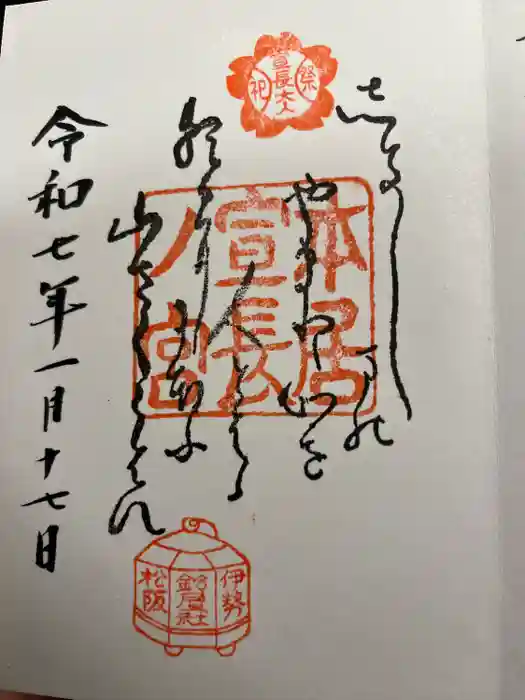 祭祀
宣長大人
志きしまの
やまとこゝろを
人とはゝ
朝日ににほふ
山さくらはな
本居
宣長
ノ宮
伊勢
鈴屋社
松阪
令和七年一月十七日